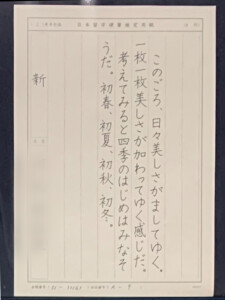 このごろ、日々美しさがましてゆく。
一枚一枚美しさが加わってゆく感じだ。
考えてみると四季のはじめはみなそ
うだ。初春、初夏、初秋、初冬。
新